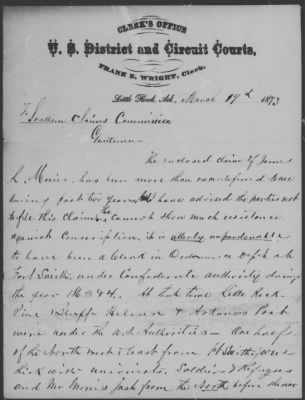 CLERK'S OFFICE
U. S. District and Circuit Courts,
FRANK E. WRIGHT, Clerk.
Little Rock, Ark. March 19th 1873
To Southern Claims Commission
Gentlemen
The enclosed claim of James
L. Morris, has been more than once refused
during past two years. I have advised the parties not
to file this claim. He cannot show much resistance
against Conscription. it is utterly unpardonable
to have been a Clerk in Ordnance dept at
Fort Smith, under Confederate authority during
the year 1863 & 4. At that time Little Rock
Pine Bluff Helena & Arkansas Post
were under the U.S. Authorities - One half
of the North west & East from Ft Smith were
thick with unionists, Soldiers & Refugees
and Mr Morris fresh from the North before the war